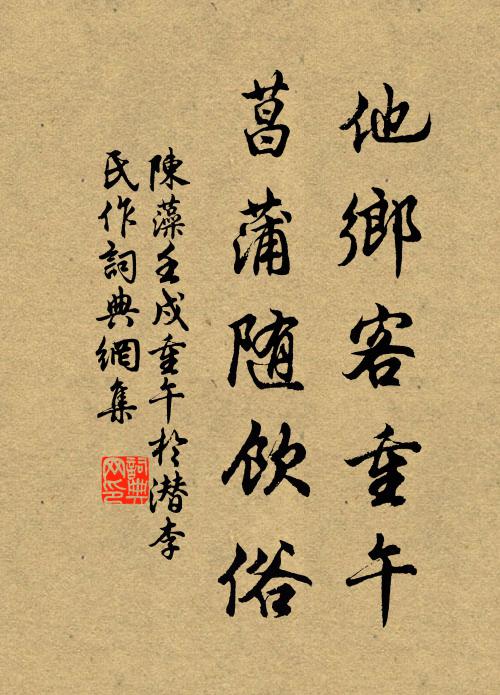 他鄉客重午
菖蒲随飲俗
陳藻壬戌重午於潜李
氏作詞典網集
詞典網印